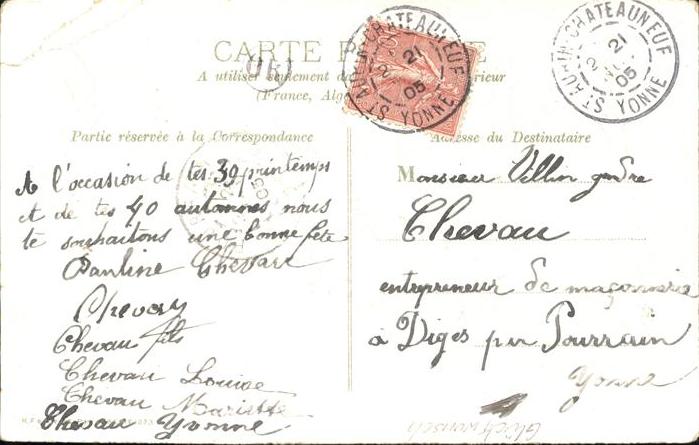 CARTE P
A utiliser seulement da rieur
(France, Alg
ST AUBIN-CHATEAUNEUF
21
05
YONNE
ST AUBIN-CHATEAUNEUF
21
05
YONNE
Partie réservée à la Correspondance
A l'occasion de tes 39 printemps
et de tes 40 automnes nous
te souhaitons une bonne fête
Pauline Chevau
Chevau
Chevau fils
Chevau Louise
Chevau Mariette
Chevau Yvonne
Adresse du Destinataire
Monsieur Villin gendre
Chevau
entrepreneur de maçonnerie
à Diges par Pourrain
Yonne
Glückwunsch